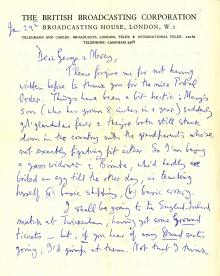 THE BRITISH BROADCASTING CORPORATION
BROADCASTING HOUSE, LONDON, W.1
TELEGRAMS AND CABLES: BROADCASTS, LONDON, TELEX ★ INTERNATIONAL TELEX:
TELEPHONE: LANGHAM 4468
Jan 29th
Dear George & Mary,
Please forgive me for not having
written before to thank you for the nice Postal
Order. Things have been a bit hectic. Margie's
son (who has grown 6 inches in a year) suddenly
got glandular fever & they're both still stuck
down in the country with the grandparents who're
not exactly fighting fit either. So I'm being
a grass widower & Bimbo, who'd hardly
boiled an egg till the other day, is teaching
himself (a) basic shopping, (b) basic cooking.
I shall be going to the England-Ireland
match at Twickenham, having got some Ground
tickets — but, if you hear of any Stand seats
going, I'd jump at them. Not that I think